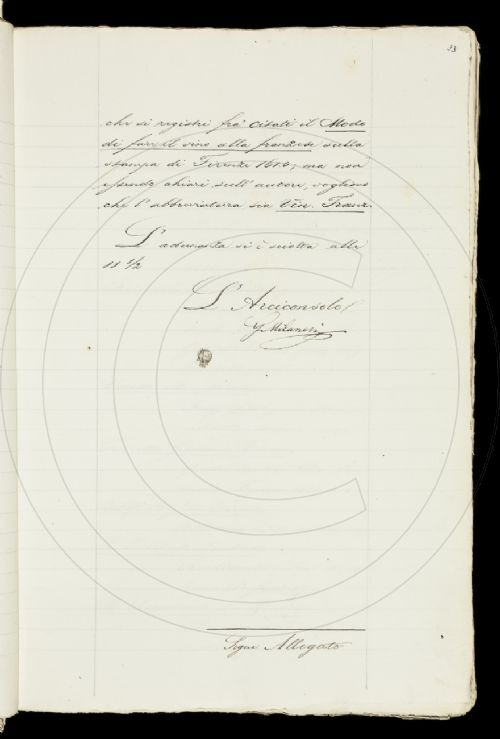 23
che si registri fra' citati il Modo
di fare il vino alla francese nella
stampa di Firenze 1610; ma non
essendo chiari sull' autore, vogliono
che l' abbreviatura sia Vin. Franz.
L' adunanza si è sciolta alle
11 1/2
L' Arciconsolo
G Milanesi
Segue Allegato